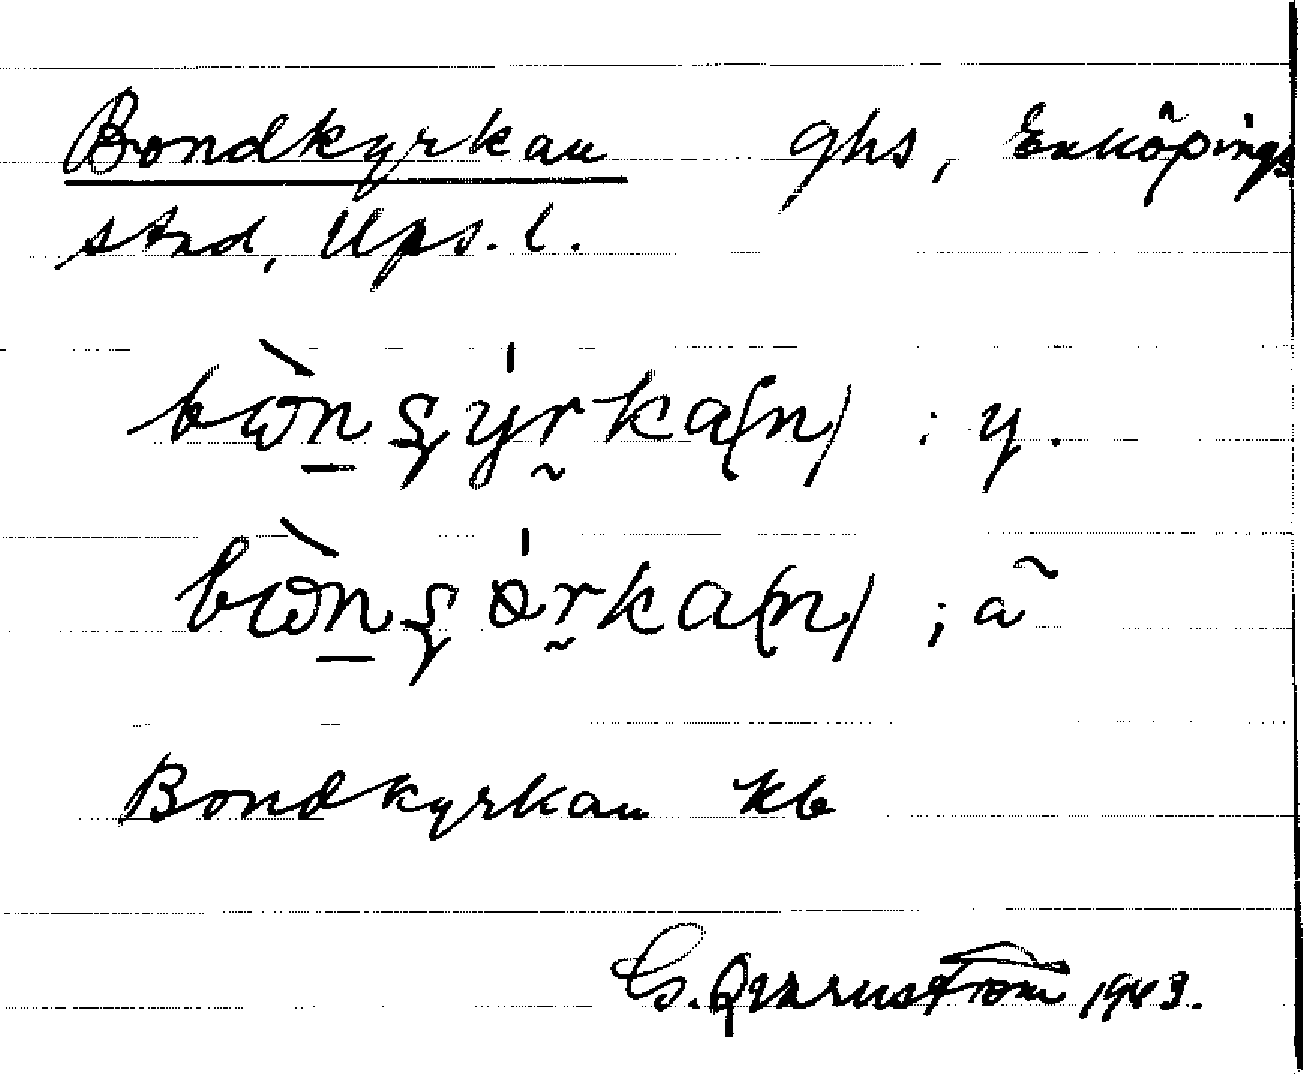 Bondkyrkan ghs, Enköpings
stad, Ups. l.
bѡ̀n̲ʂýr̰ka(n) : y.
bѡ̀n̲ʂɵ́r̰ka(n) ; ã
Bondkyrkan kb
G. Qvarnström 1943.